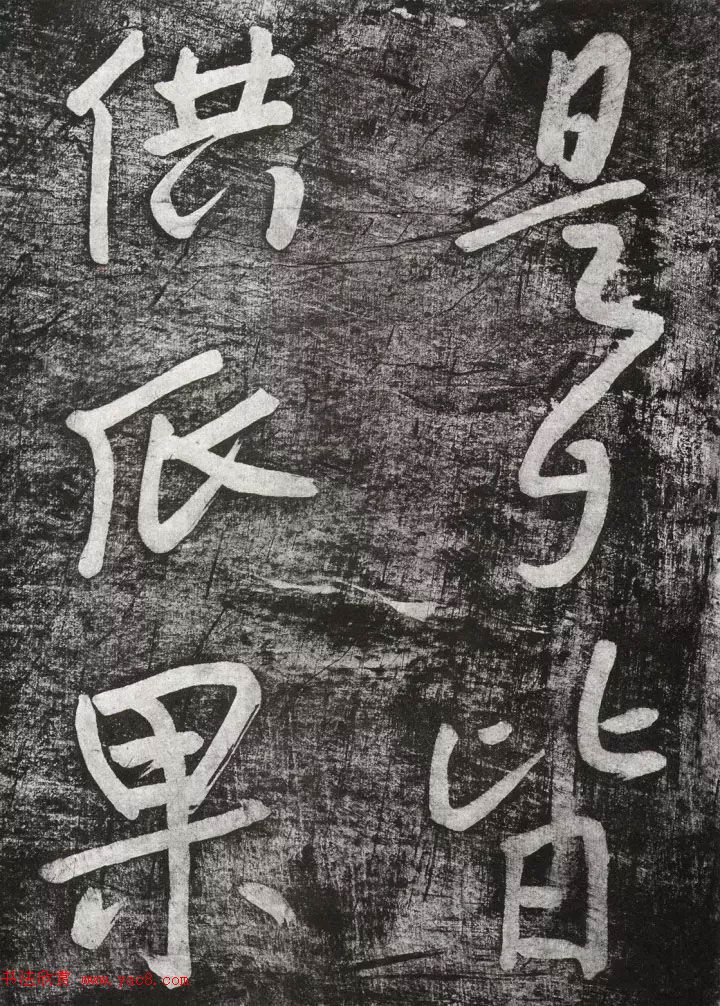 是皆
供瓜果
书法欣赏 www.yac8.com